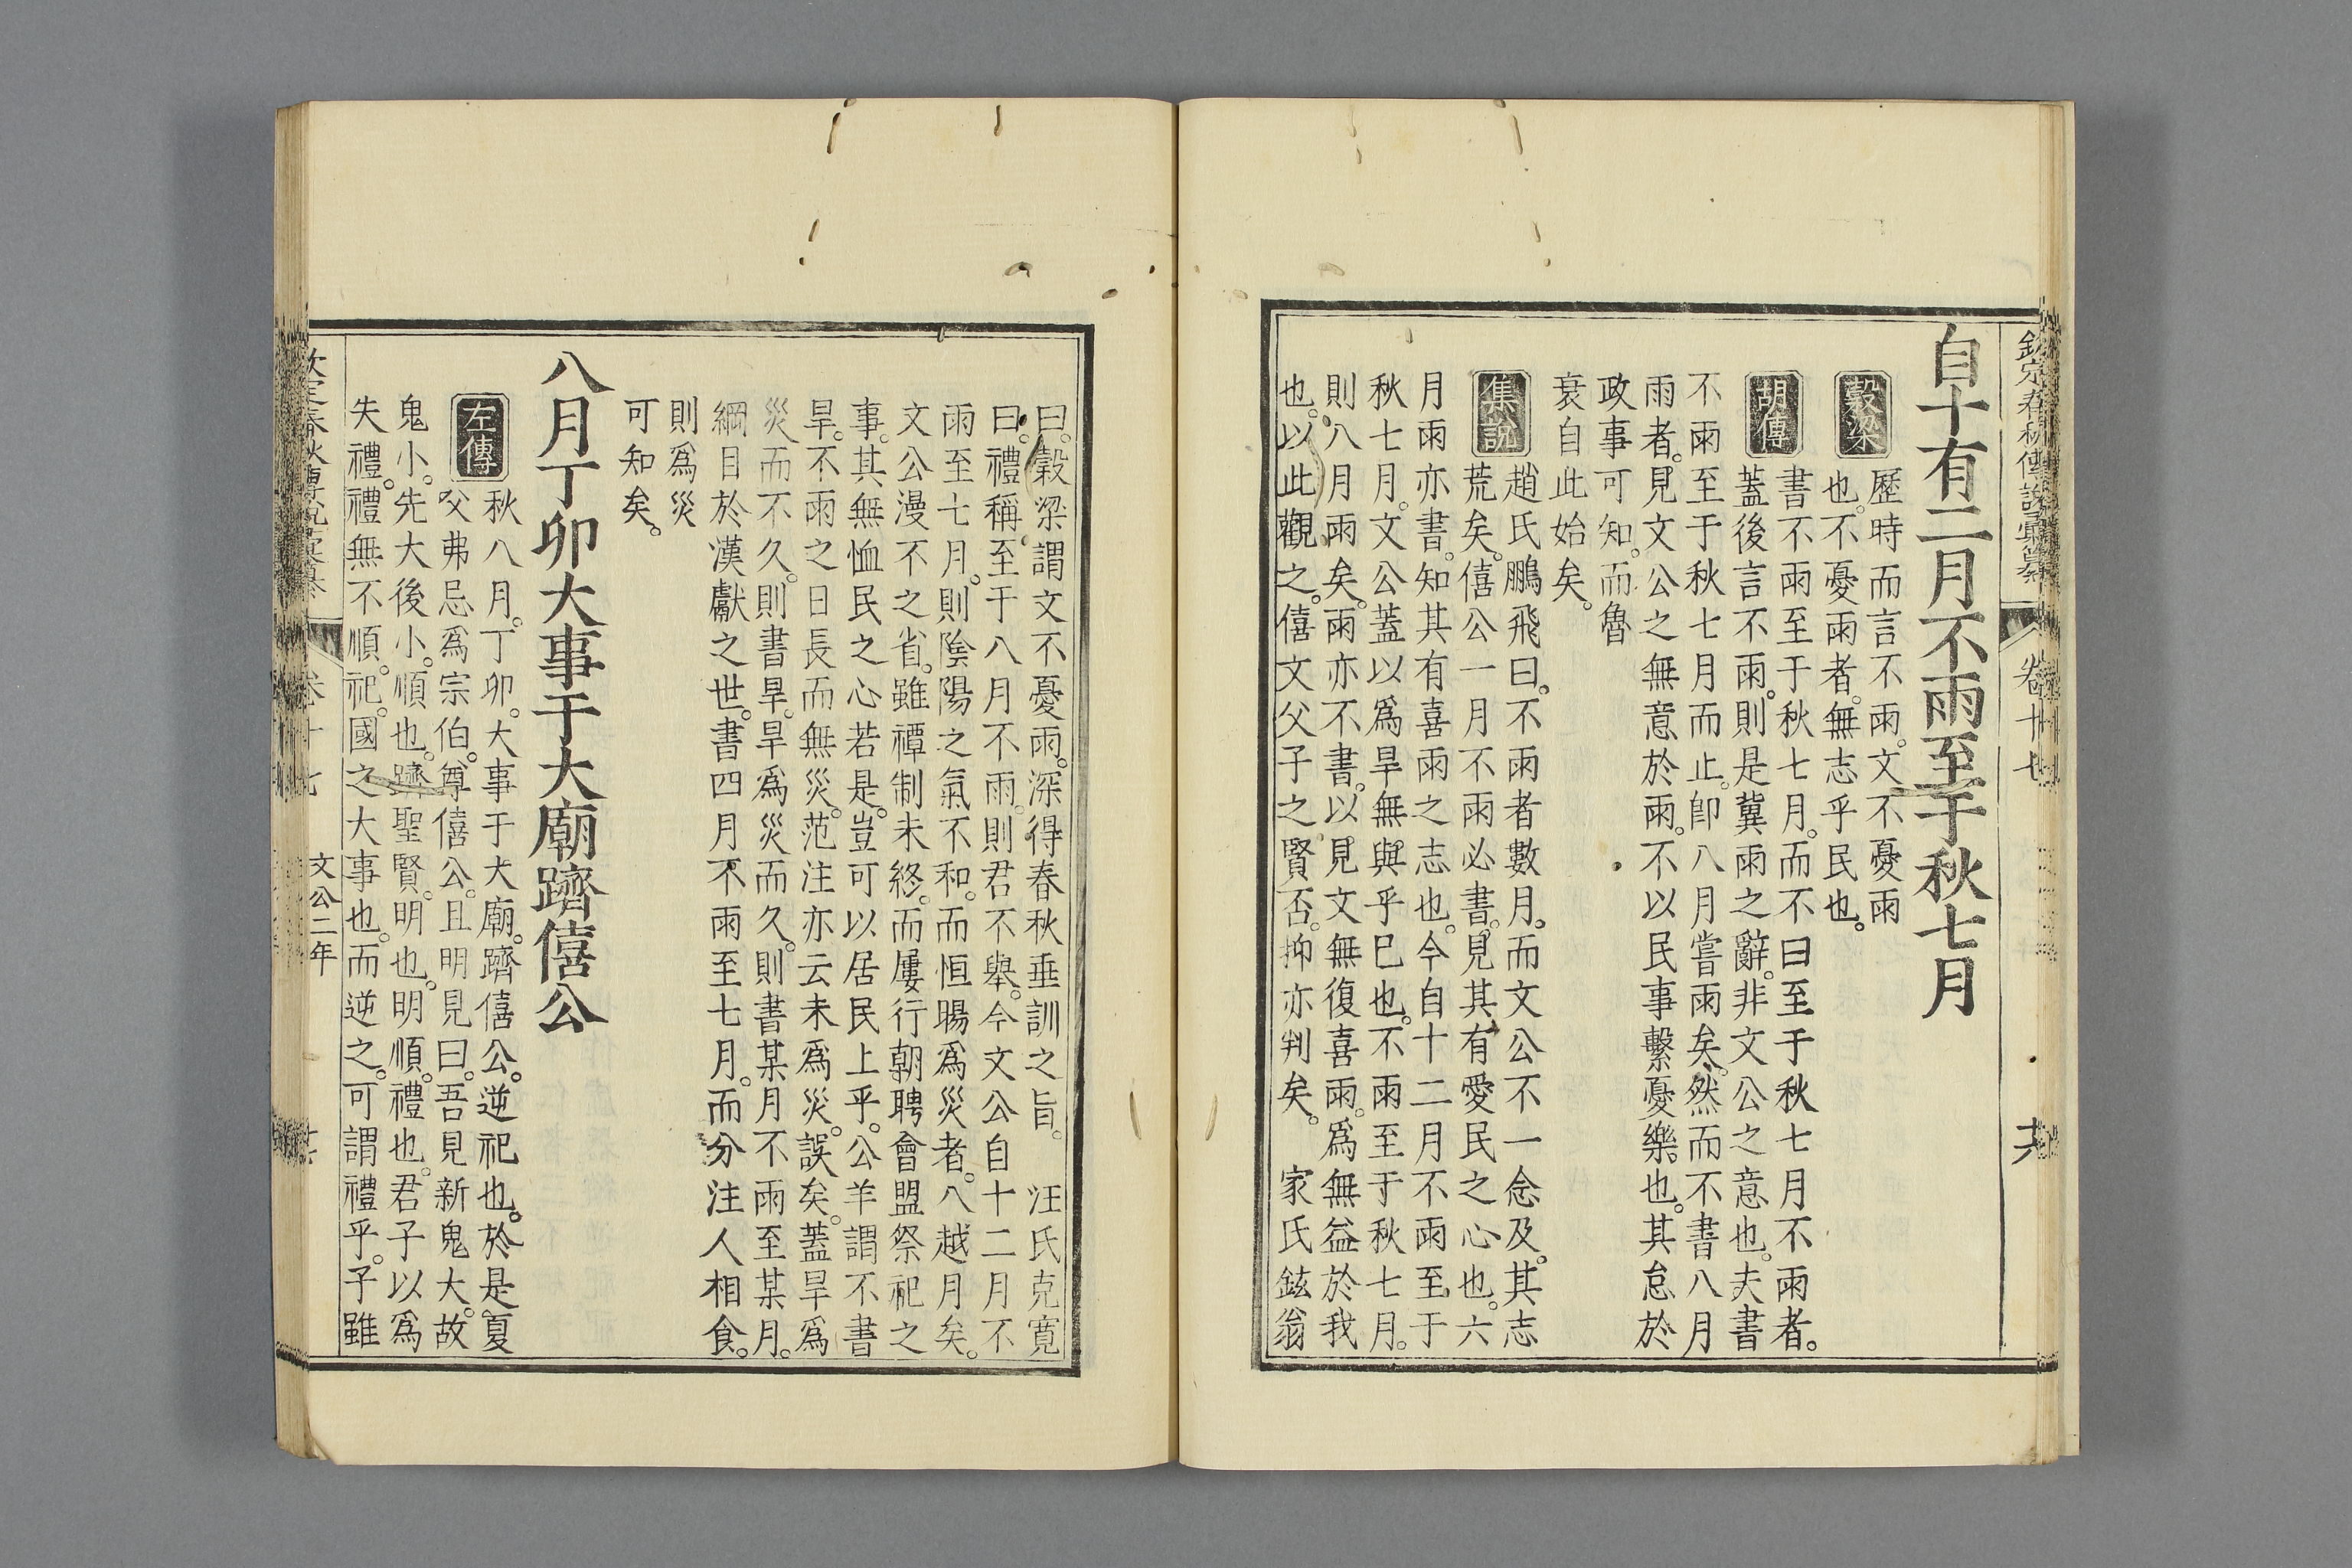 欽定春秋傳說彙纂 卷十七
自十有二月不雨至于秋七月
穀梁
歷時而言不雨。文不憂雨
也。不憂雨者。無志乎民也。
胡傳
書不雨至于秋七月。而不曰至于秋七月不雨者。
蓋後言不雨。則是冀雨之辭。非文公之意也。夫書
不雨至于秋七月而止。卽八月嘗雨矣。然而不書八月
雨者。見文公之無意於雨。不以民事繫憂樂也。其怠於
政事可知。而魯
衰自此始矣。
集說
趙氏鵬飛曰。不雨者數月。而文公不一念及。其志
荒矣。僖公一月不雨必書。見其有愛民之心也。六
月雨亦書。知其有喜雨之志也。今自十二月不雨至于
秋七月。文公蓋以爲旱無與乎巳也。不雨至于秋七月。
則八月雨矣。雨亦不書。以見文無復喜雨。爲無益於我
也。以此觀之。僖文父子之賢否。抑亦判矣。 家氏鉉翁
曰。穀梁謂文不憂雨。深得春秋垂訓之旨。 汪氏克寬
曰。禮稱至于八月不雨。則君不舉。今文公自十二月不
雨至七月。則陰陽之氣不和。而恒暘爲災者。八越月矣。
文公漫不之省。雖禫制未終。而屢行朝聘會盟祭祀之
事。其無恤民之心若是。豈可以居民上乎。公羊謂不書
旱。不雨之日長而無災。范注亦云未爲災。誤矣。蓋旱爲
災而不久。則書旱。旱爲災而久。則書某月不雨至某月。
綱目於漢獻之世。書四月不雨至七月。而分注人相食。
則爲災
可知矣。
八月丁卯大事于大廟躋僖公
左傳
秋八月。丁卯。大事于大廟。躋僖公。逆祀也。於是。夏
父弗忌爲宗伯。尊僖公。且明見曰。吾見新鬼大。故
鬼小。先大後小。順也。躋聖賢。明也。明順。禮也。君子以爲
失禮。禮無不順。祀。國之大事也。而逆之。可謂禮乎。子雖
欽定春秋傳說彙纂 卷十七 文公二年